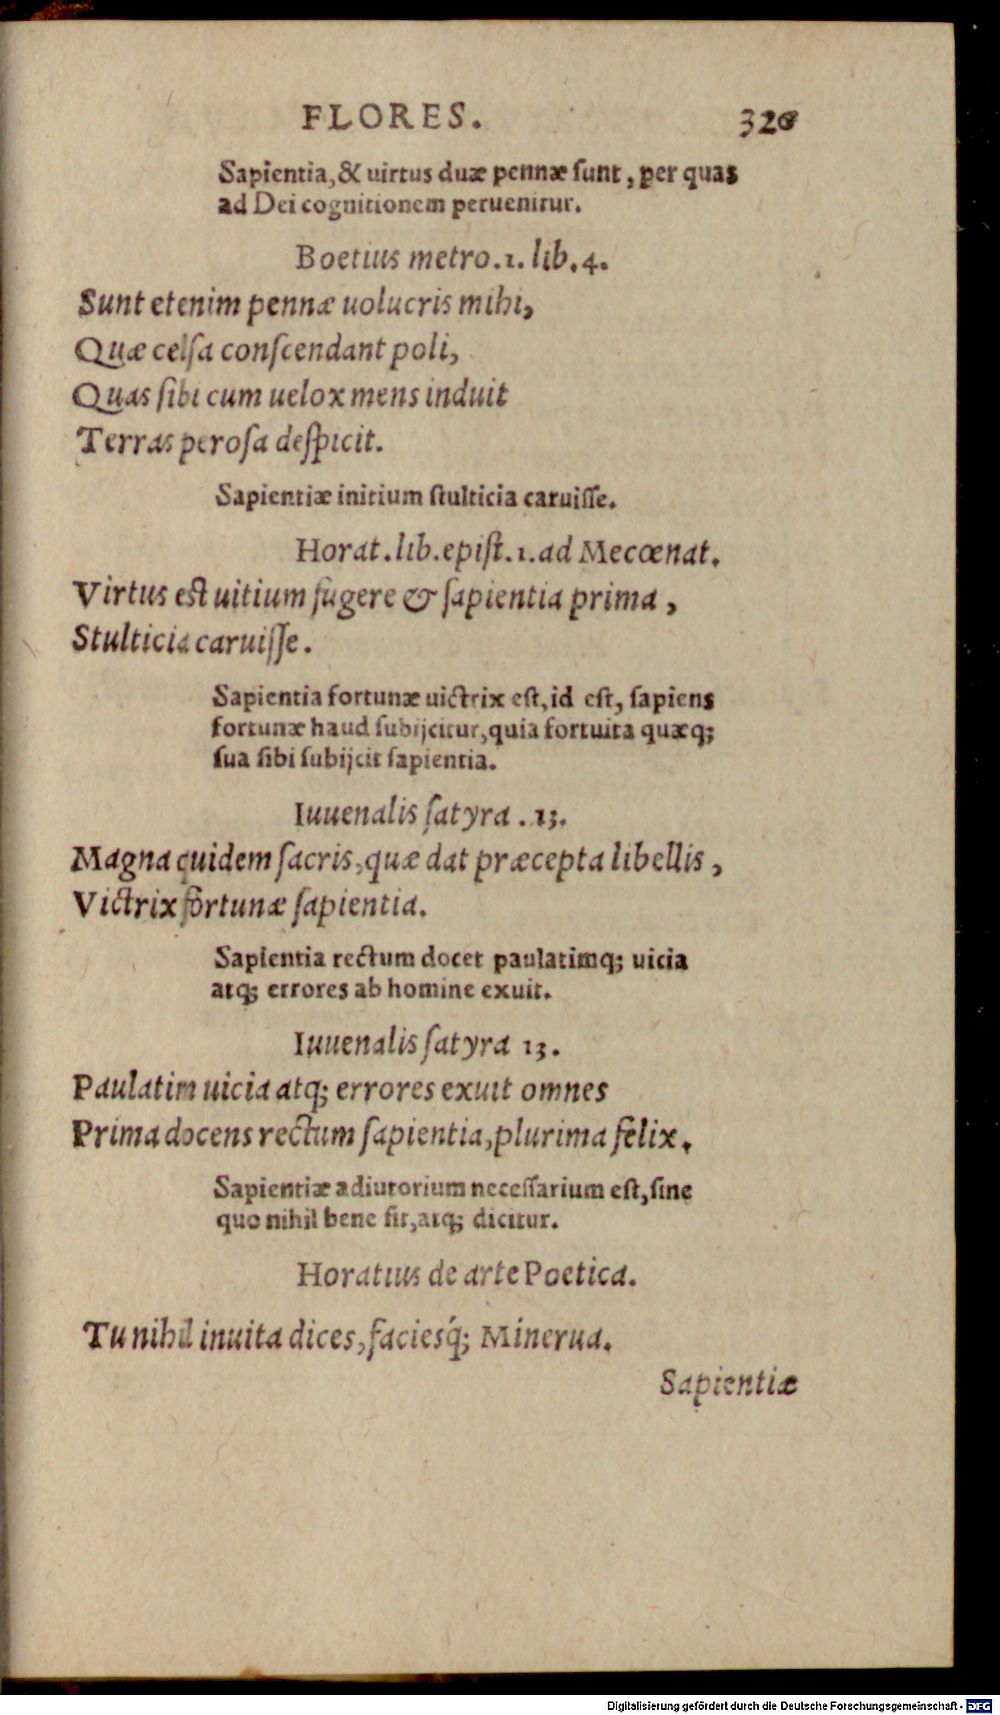 FLORES. 320
Sapientia, & uirtus duæ pennæ ſunt, per quas
ad Dei cognitionem peruenitur.
Boetius metro.1. lib.4.
Sunt etenim pennæ uolucris mihi,
Quæ celſa conſcendant poli,
Quas ſibi cum uelox mens induit
Terras peroſa deſpicit.
Sapientiæ initium ſtulticia caruiſſe.
Horat.lib.epiſt.1.ad Mecœnat.
Virtus eſt uitium fugere & ſapientia prima,
Stulticia caruiſſe.
Sapientia fortunæ uictrix eſt, id eſt, ſapiens
fortunæ haud ſubijcitur, quia fortuita quæq;
sua ſibi ſubijcit ſapientia.
Iuuenalis ſatyra .13.
Magna quidem ſacris, quæ dat præcepta libellis,
Victrix fortunæ ſapientia.
Sapientia rectum docet paulatimq; uicia
atq; errores ab homine exuit.
Iuuenalis ſatyra 13.
Paulatim uicia atq; errores exuit omnes
Prima docens rectum ſapientia, plurima felix.
Sapientiæ adiutorium neceſſarium eſt, ſine
quo nihil bene fit, atq; dicitur.
Horatius de arte Poetica.
Tu nihil inuita dices, faciesq́; Minerua.
Sapientiæ
Digitalisierung gefördert durch die Deutsche Forschungsgemeinschaft - DFG